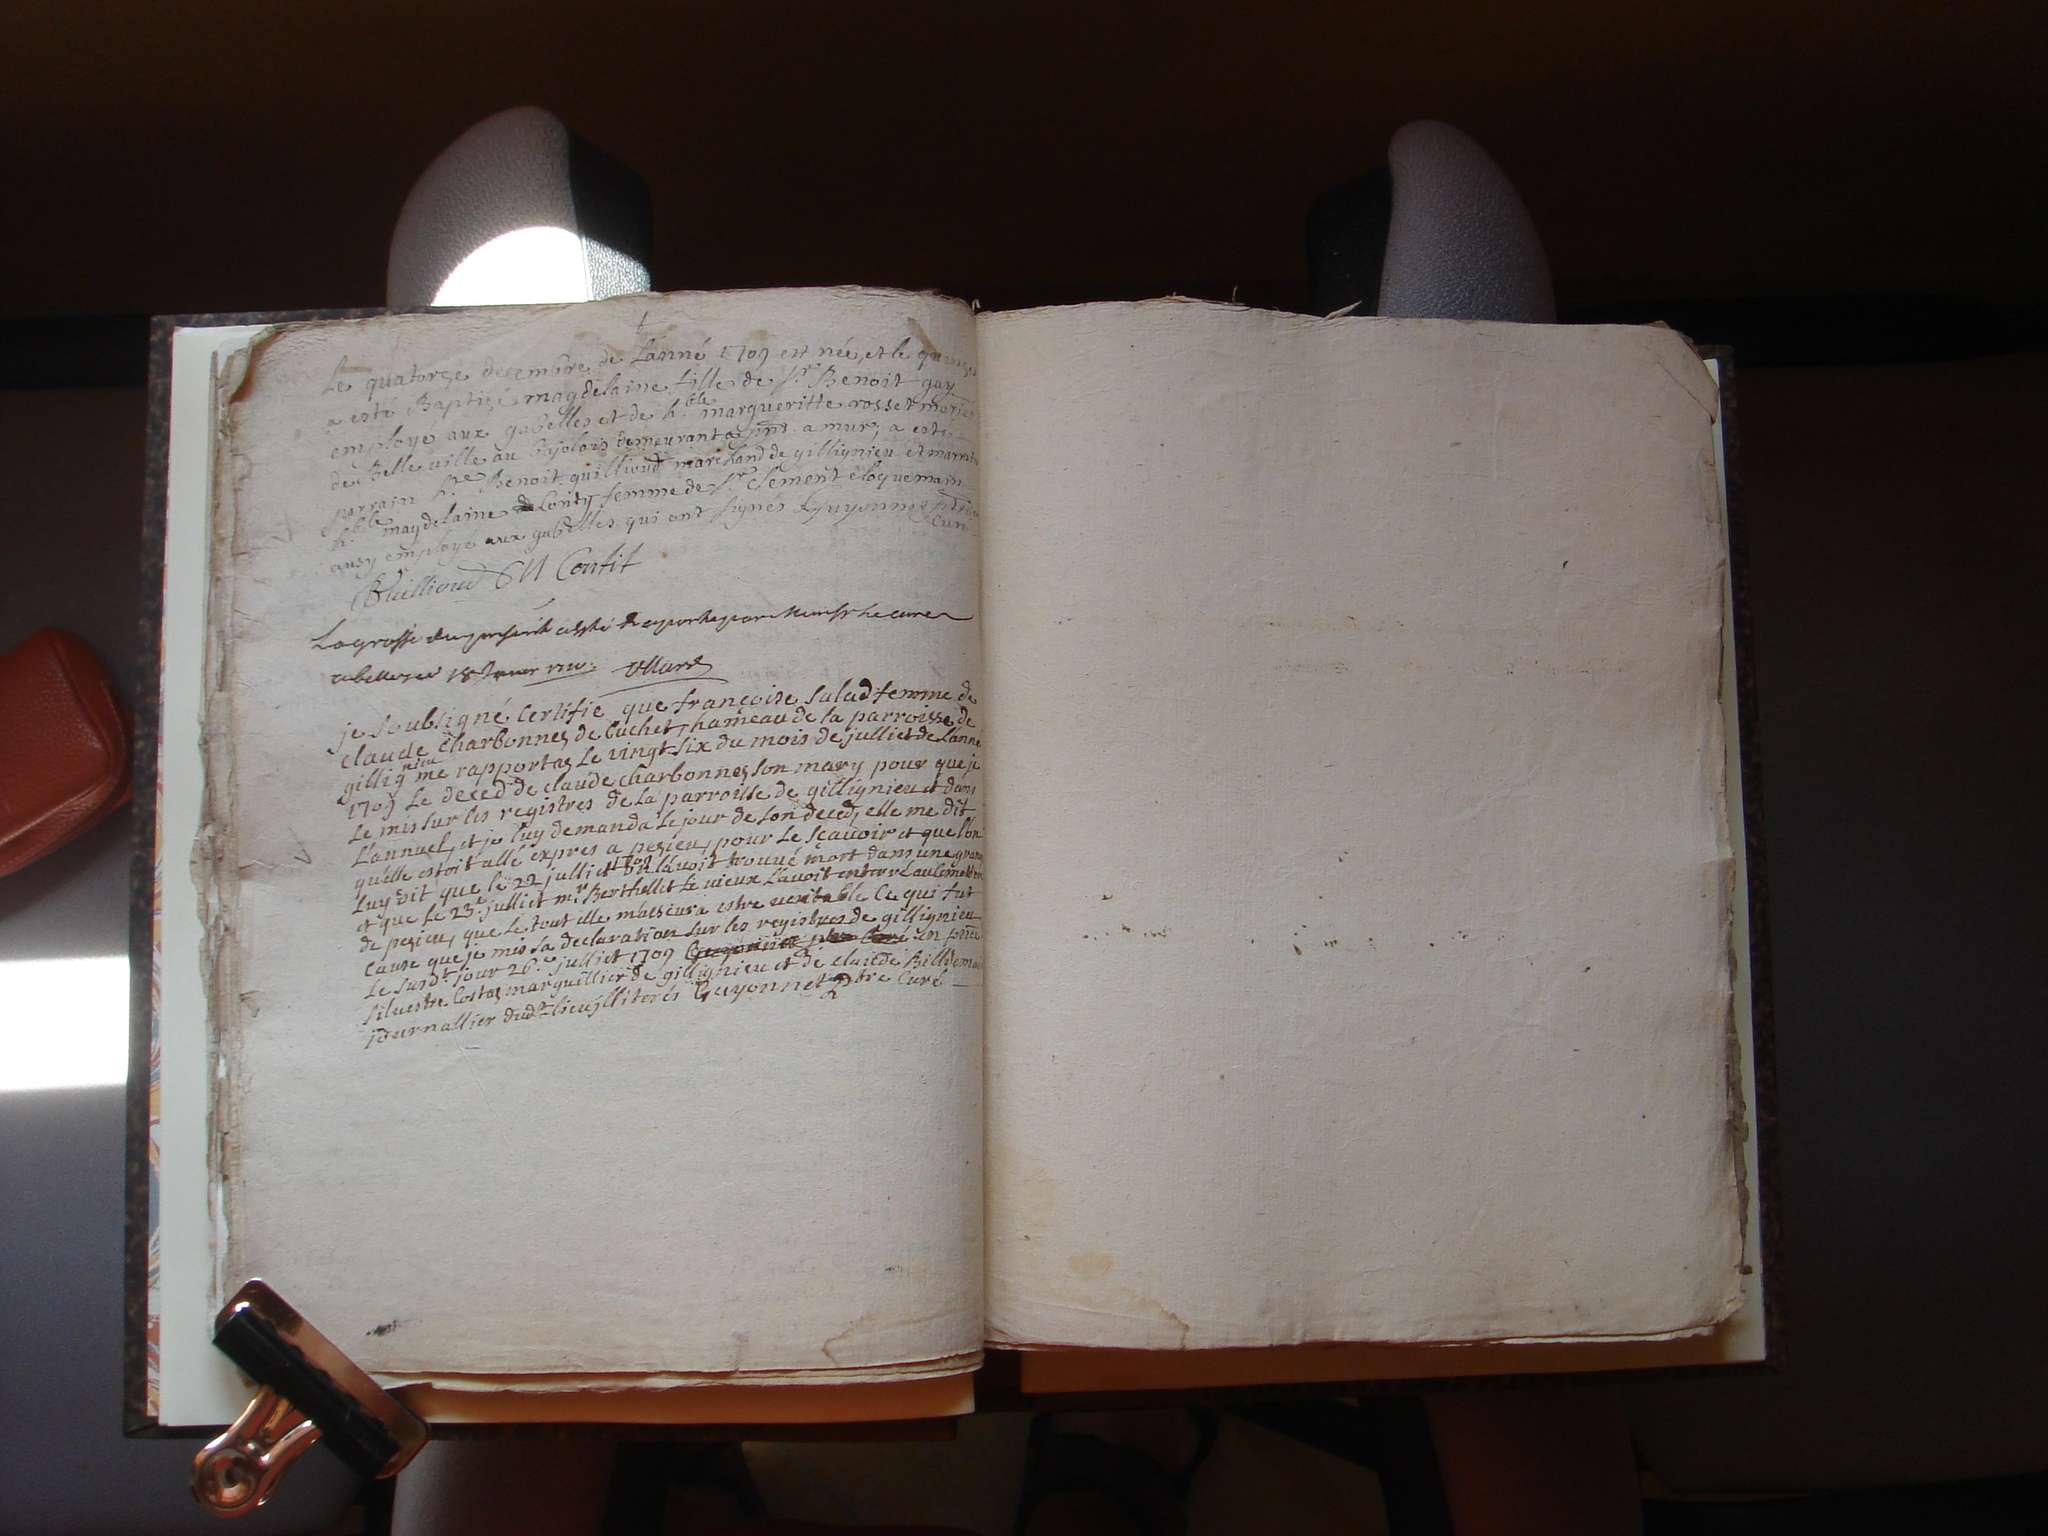 Le quatorze decembre de L'anné 1709 est née, et le quinze
a esté Baptizé magdelaine fille de Sr. Benoit gay
employé aux gabelles et de h.ble margueritte rosset mariés
de Belle ville au bojolois demeurant a pnt. a mur, a esté
parrain h.re Benoit quillioud marchand de gillignieu et marraine
h.ble magdelaine Contiz femme de Sr. Clement eloquemain
ausy employe aux gabelles qui ont signés Guyonnet ptre
Curé
BGuillioud CM Contit
La grosse du present a esté raportée par Monsr Le curé
a belley ce 18 Janvier 1710. Ullard
je soubsigné certifie que françoise salad femme de
claude Charbonnez de Cuchet, hameau de la parroisse de
gillignieu me rapportaz Le vingt six du mois de julliet de L'anné
1709 Le deced de claude charbonnez son mary pour que je
Le mis sur les registres de la parroisse de gillignieu et dans
L'annuel, et je luy demanda Le jour de son deced, elle me dit
qu'elle estoit allé expres a pezieu, pour Le sçauoir et que l'on
Luy dit que le 22 julliet 1709 on l'auoit trouué mort dans une grange
et que Le 23e julliet mr. Berthellet Le vieux L'auoit enterré au cimettiere
de pezieu, que Le tout elle m'asseura estre veritable Ce qui fut
Cause que je mis sa declaration sur les registres de gillignieu
Le susdt. jour 26e julliet 1709 Guyonnet ptre Curé en pnce
silvestre Costaz marguillier de gillignieu et de claude Billiemaz
journallier dudt. lieu jlliterés Guyonnet Ptre Curé